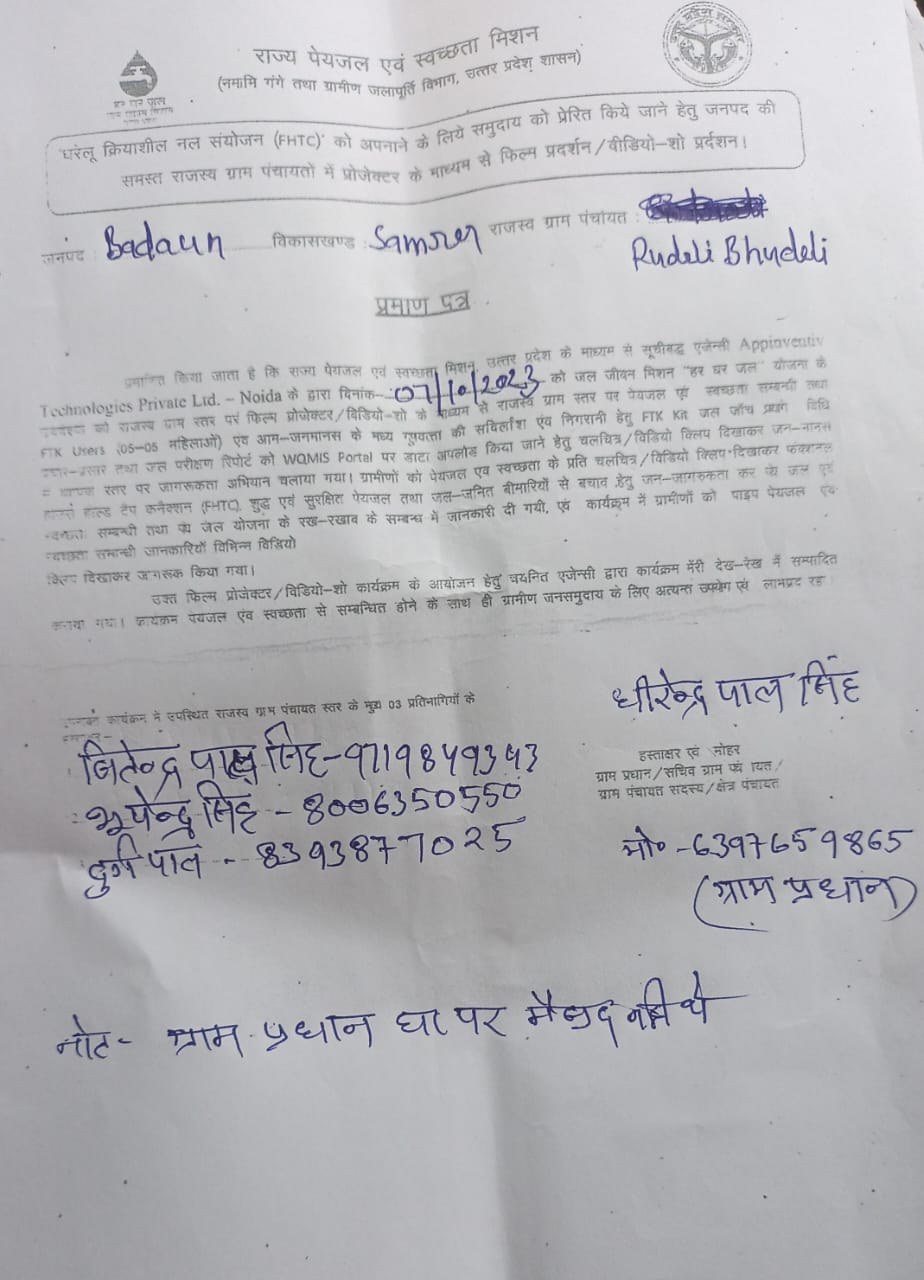 राज्य पेयजल एवं स्वच्छता मिशन
(नमामि गंगे तथा ग्रामीण जलापूर्ति विभाग, उत्तर प्रदेश शासन)
'घरेलू क्रियाशील नल संयोजन (FHTC)' को अपनाने के लिये समुदाय को प्रेरित किये जाने हेतु जनपद की
समस्त राजस्व ग्राम पंचायतों में प्रोजेक्टर के माध्यम से फिल्म प्रदर्शन/वीडियो-शो प्रर्दशन।
जनपद : Badaun विकासखण्ड : Samrer राजस्व ग्राम पंचायत :
Rudeli Bhudeli
प्रमाण पत्र
प्रमाणित किया जाता है कि राज्य पेयजल एवं स्वच्छता मिशन, उत्तर प्रदेश के माध्यम से सूचीबद्ध एजेन्सी Appinventiv
Technologies Private Ltd. – Noida के द्वारा दिनांक- 07/10/2023 को जल जीवन मिशन "हर घर जल" योजना के
को राजस्व ग्राम स्तर पर फिल्म प्रोजेक्टर/विडियो-शो के माध्यम से राजस्व ग्राम स्तर पर पेयजल एवं स्वच्छता सम्बन्धी तथा
FTK Users (05-05 महिलाओं) एंव आम-जनमानस के मध्य गुणवत्ता की सर्विलांश एंव निगरानी हेतु FTK Kit जल जाँच विधि
तथा जल परीक्षण रिपोर्ट को WQMIS Portal पर डाटा अपलोड किया जाने हेतु चलचित्र/विडियो क्लिप दिखाकर जन-मानस
स्तर पर जागरूकता अभियान चलाया गया। ग्रामीणों को पेयजल एव स्वच्छता के प्रति चलचित्र/विडियो क्लिप-दिखाकर फंक्शनल
हाउस होल्ड टैप कनैक्शन (FHTC), शुद्ध एवं सुरक्षित पेयजल तथा जल-जनित बीमारियों से बचाव हेतु जन-जागरुकता कर जल एवं
सम्बन्धी तथा जल योजना के रख-रखाव के सम्बन्ध में जानकारी दी गयी, एवं कार्यक्रम में ग्रामीणों को पाइप पेयजल एवं
स्वच्छता सम्बन्धी जानकारियों विभिन्न विडियो
क्लिप दिखाकर जागरूक किया गया।
उक्त फिल्म प्रोजेक्टर/विडियो-शो कार्यक्रम के आयोजन हेतु चयनित एजेन्सी द्वारा कार्यक्रम मेरी देख-रेख में सम्पादित
कराया गया। कार्यक्रम पेयजल एंव स्वच्छता से सम्बन्धित होने के साथ ही ग्रामीण जनसमुदाय के लिए अत्यन्त उपयोग एवं लाभप्रद रहा
धीरेन्द्र पाल सिंह
कार्यक्रम में उपस्थित राजस्व ग्राम पंचायत स्तर के मुख्य 03 प्रतिभागियों के
जितेन्द्र पाल सिंह-9719849343
हस्ताक्षर एवं मोहर
ग्राम प्रधान/सचिव ग्राम पंचायत/
ग्राम पंचायत सदस्य/क्षेत्र पंचायत
भूपेन्द्र सिंह - 8006350550
दुर्ग पाल - 8393877025
मो० -6397659865
(ग्राम प्रधान)
नोट- ग्राम प्रधान घर पर मौजूद नही थे